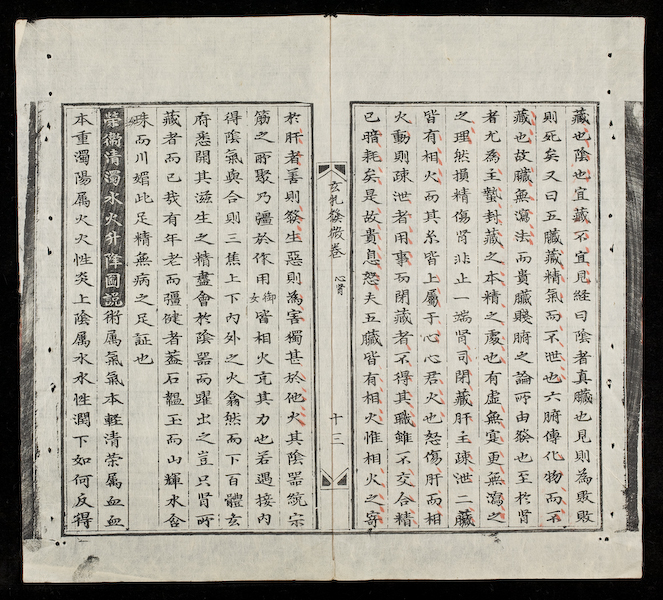 藏也陰也宜藏不宜見経曰陰者真臓也見則為敗敗
則死矣又曰五臓藏精氣而不泄也六腑傳化物而不
藏也故臓無瀉法而貴臓賤腑之論所由發也至於腎
者尤為主蟄封藏之本精之處也有虚無寔更無瀉之
之理然損精傷腎非止一端腎司閉藏肝主疎泄二臓
皆有相火而其系皆上屬于心心君火也怒傷肝而相
火動則疎泄者用事而閉藏者不得其職雖不交合精
已暗耗矣是故貴息怒夫五臓皆有相火惟相火之寄
玄牝發微卷 心腎 十三
於肝者善則發生惡則為害獨甚於他火其陰器統宗
筋之所聚乃彊於作用御女皆相火充其力也若遇接内
得陰氣與合則三焦上下内外之火翕然而下百體玄
府悉開其滋生之精盡會於陰器而躍出之豈只腎所
藏者而已哉有年老而彊健者葢石韞玉而山輝水含
珠而川媚此足精無病之足証也
榮衛清濁水火升降圖説 術属氣氣本軽清榮属血血
本重濁陽属火火性炎上陰属水水性潤下如何反得